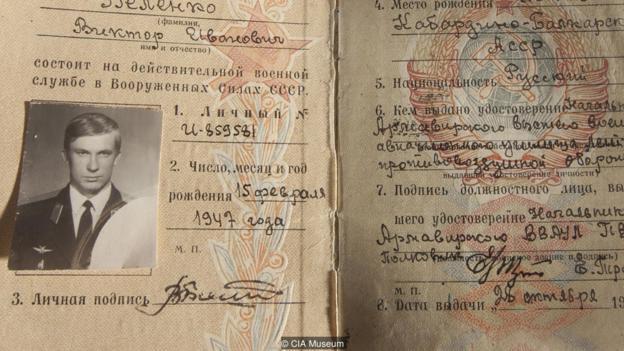 Беленко
(фамилия,
Виктор Иванович
имя и отчество)
состоит на действительной военной
службе в Вооруженных Силах СССР.
1. Личный №
И-859581
2. Число, месяц и год
рождения 15 февраля
1947 года
М. П.
3. Личная подпись
4. Место рождения
Кабардино-Балкарск
АССР
5. Национальность Русский
6. Кем выдано удостоверение Начальник
Армавирского высшего воен
авиационного училища
противовоздушной оборон
7. Подпись должностного лица, вы
шего удостоверение Начальник
Армавирского ВВАУЛ ПВ
полковник
М. П.
8. Дата выдачи „26 октября 19
© CIA Museum